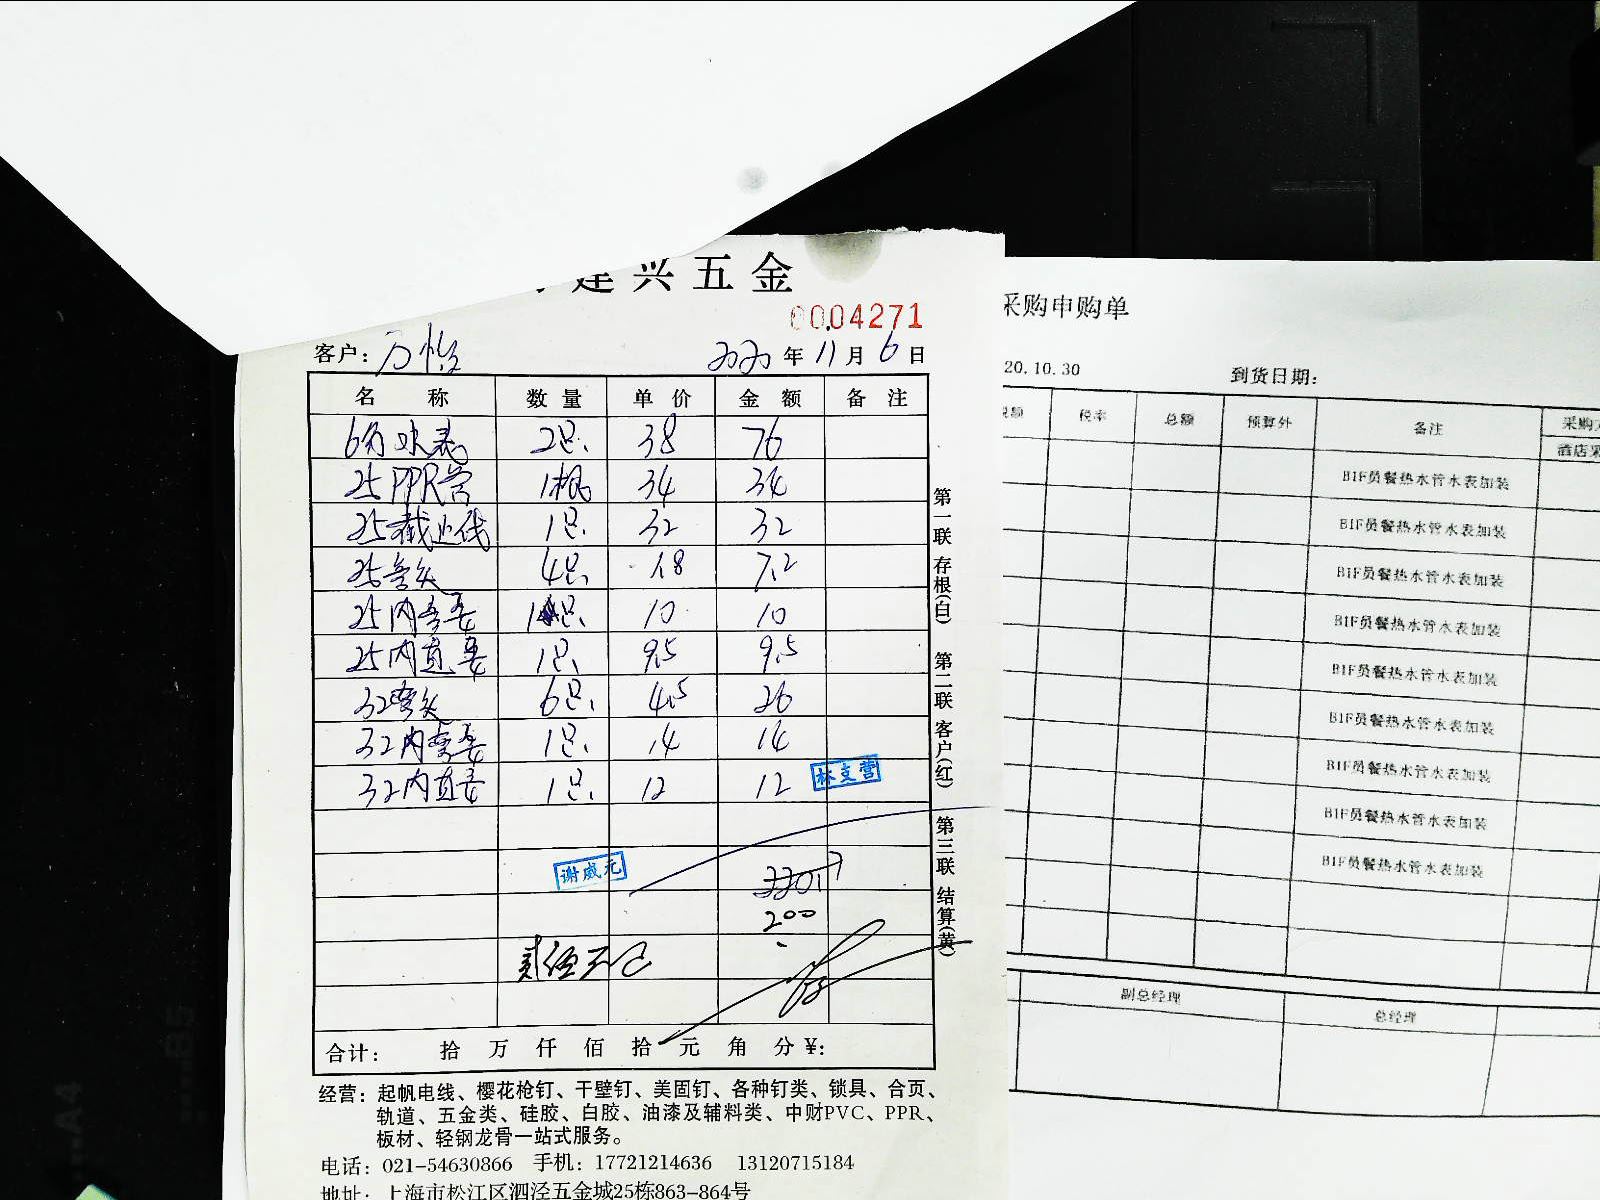 建兴五金
0004271
客户: 万怡 2020年11月6日
名称 数量 单价 金额 备注
6分水表 2只 38 76
25PPR管 1根 34 34
25截止伐 1只 32 32
25弯头 4只 1.8 7.2
25内弯接 1只 10 10
25内直接 1只 9.5 9.5
32弯头 6只 4.5 26
32内弯接 1只 14 14
32内直接 1只 12 12
林支营
谢威元
200
合计: 拾 万 仟 佰 拾 元 角 分 ¥:
第一联 存根(白) 第二联 客户(红) 第三联 结算(黄)
经营: 起帆电线、樱花枪钉、干壁钉、美固钉、各种钉类、锁具、合页、
轨道、五金类、硅胶、白胶、油漆及辅料类、中财PVC、PPR、
板材、轻钢龙骨一站式服务。
电话: 021-54630866 手机: 17721214636 13120715184
地址: 上海市松江区泗泾五金城25栋863-864号
采购申购单
20.10.30 到货日期:
税率 总额 预算外 备注 采购
酒店采
B1F员餐热水管水表加装
B1F员餐热水管水表加装
B1F员餐热水管水表加装
B1F员餐热水管水表加装
B1F员餐热水管水表加装
B1F员餐热水管水表加装
B1F员餐热水管水表加装
B1F员餐热水管水表加装
B1F员餐热水管水表加装
副总经理 总经理
A4
B5